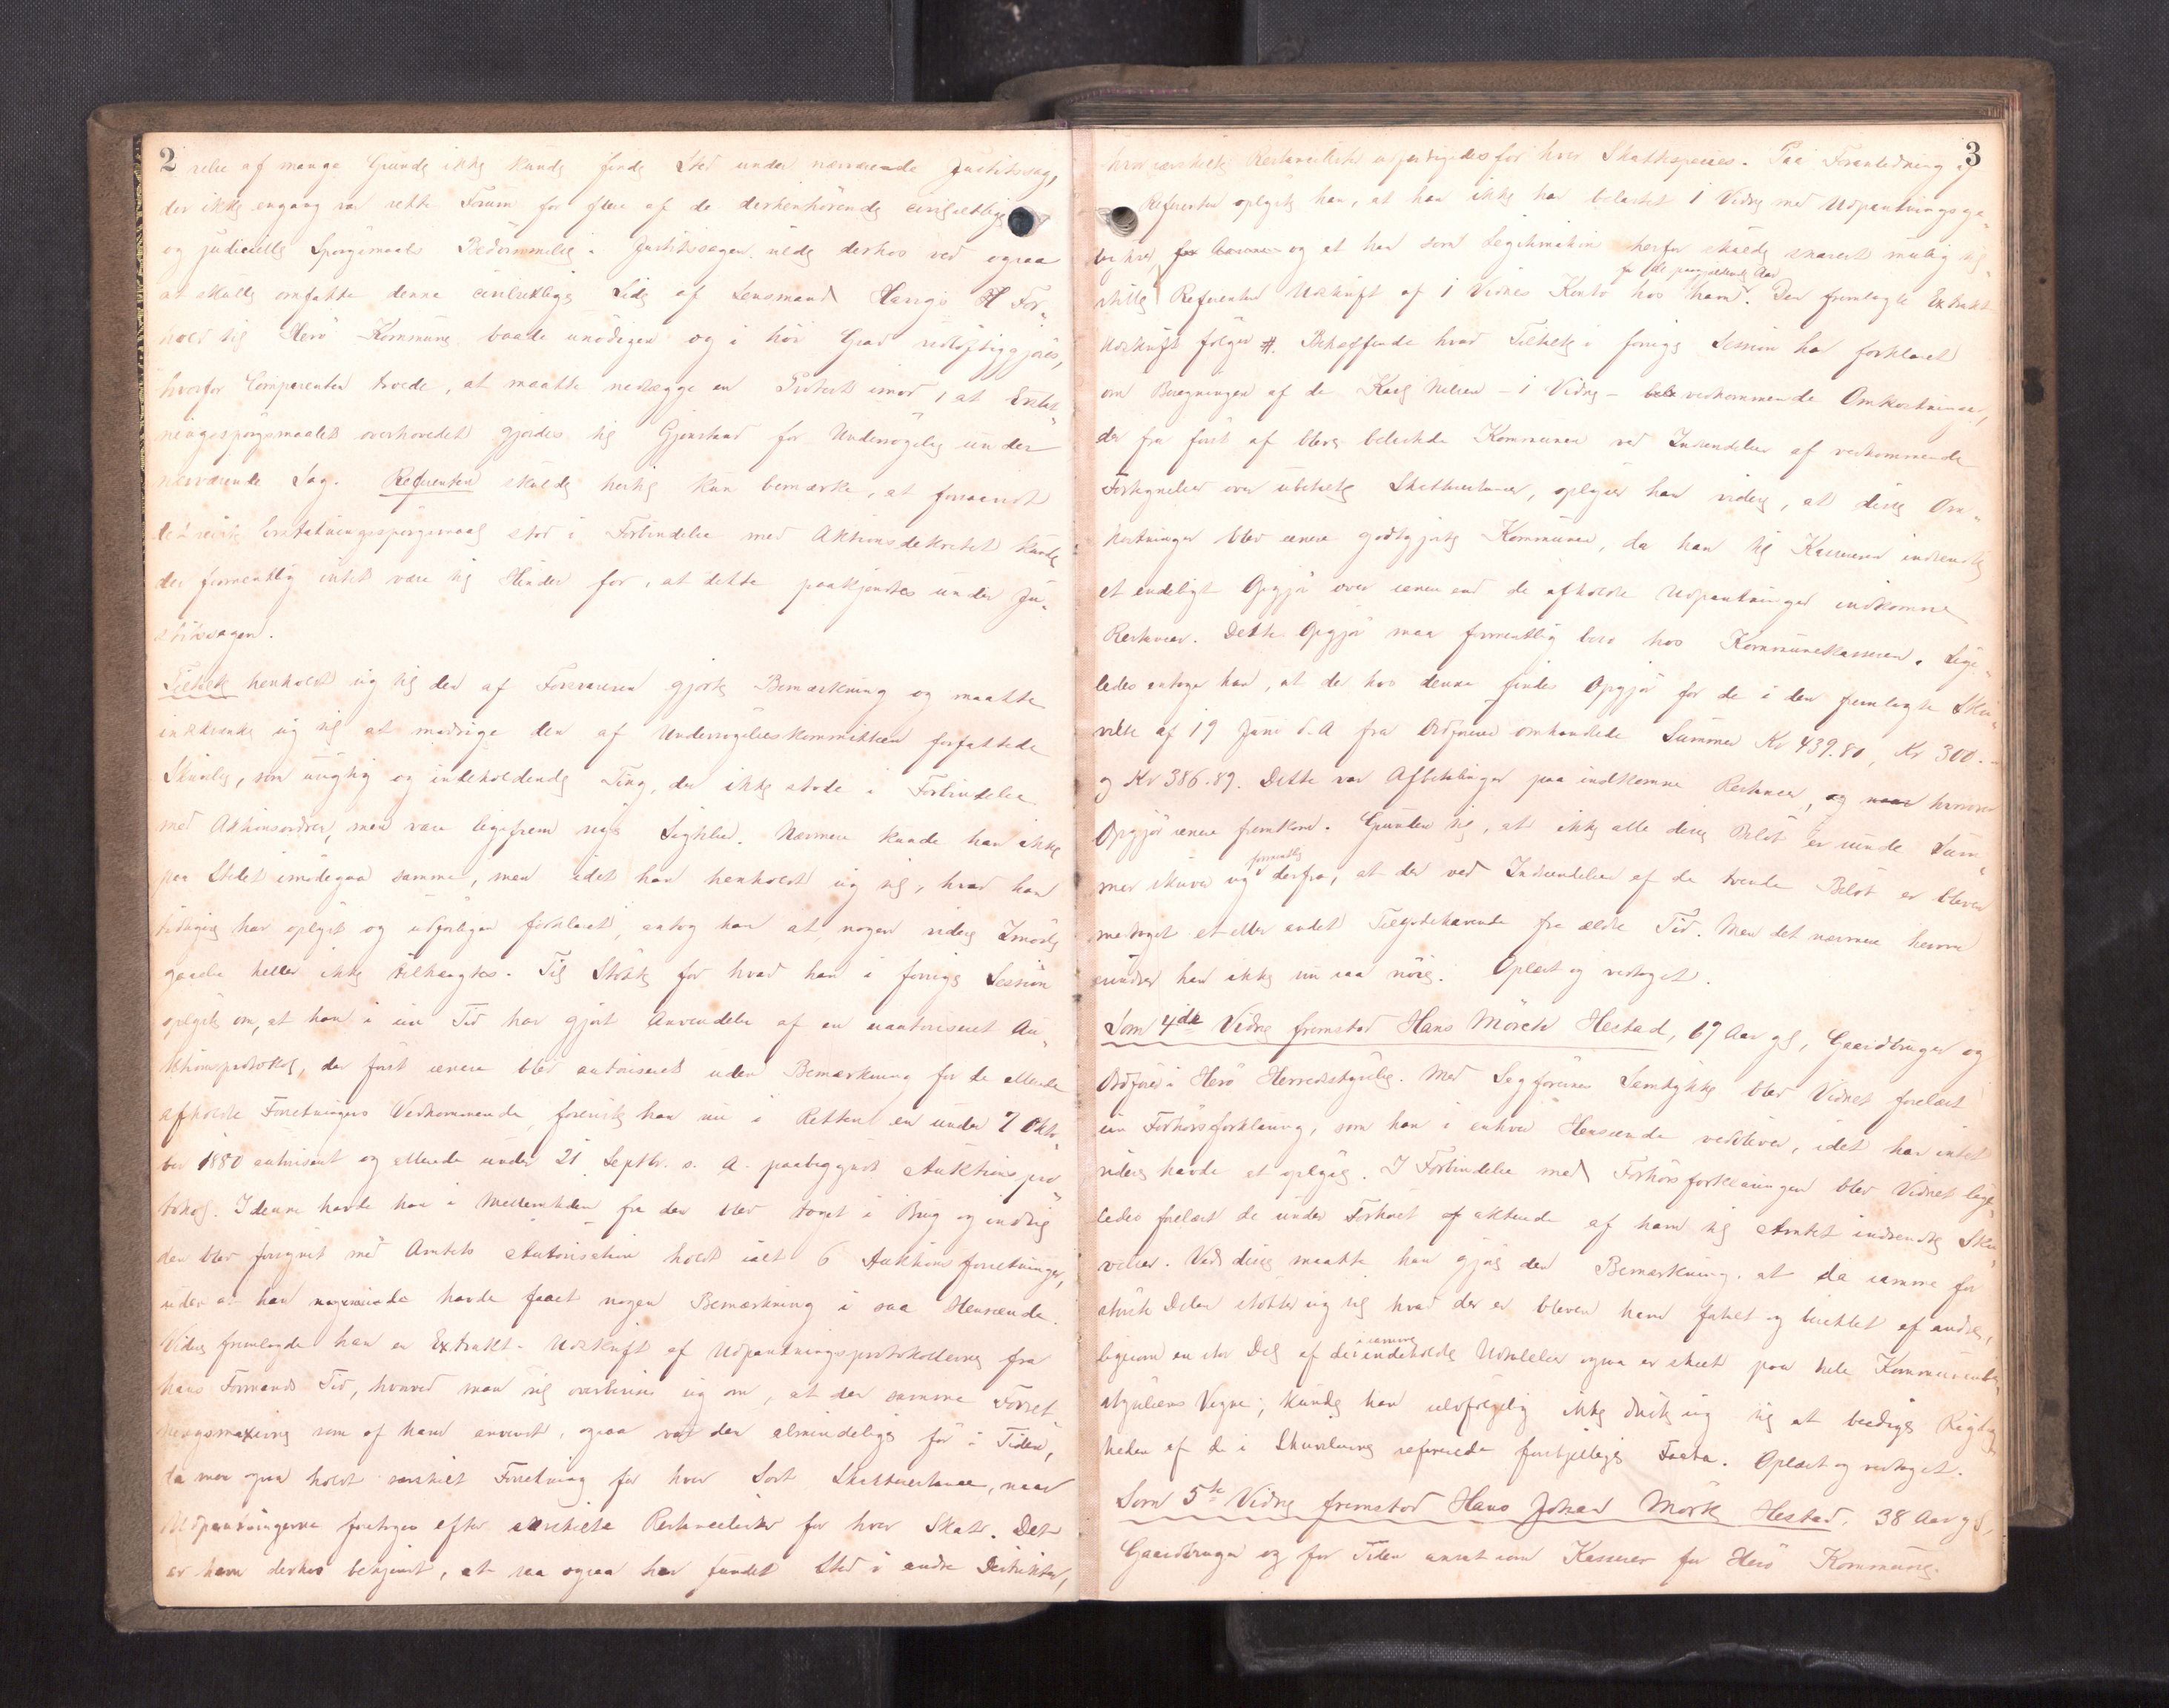 2
relse af mange Grunde ikke kunde finde Sted under nærværende Justitssag,
der ikke engang var rette Forum for flere af de derhenhörende civilretlige
og judicielle Spörgsmaals Bedömmelse. Justitssagen vilde derhos ved ogsaa
at skulle omfatte denne civilretlige Side af Lensmand Haugs For-
hold til Herö Kommune baade unödigen og i höi Grad vidlöftiggjöres,
hvorfor Comparenten troede, at maatte nedlægge en Protest imod, at Erstat-
ningsspörgsmaalet overhovedet gjordes til Gjenstand for Undersögelse under
nærværende Sag. Referenten skulde hertil kun bemærke, at forsaavidt
Erstatningsspörgsmaal stod i Forbindelse med Aktionsdekretet kunde
der formentlig intet være til Hinder for, at dette paakjendtes under Ju-
stitssagen.
Tiltalte henholdt sig til den af Forsvareren gjorte Bemærkning og maatte
indskrænke sig til at modsige den af Undersögelseskommitteen forfattede
Skrivelse, som urigtig og indeholdende Ting, der ikke stode i Forbindelse
med Aktionsordren, men vare ligefrem nye Sigtelser. Nærmere kunde han ikke
paa Stedet imödegaa samme, men idet han henholdt sig til, hvad han
tidligere har oplyst og udförligen forklaret, antog han at nogen videre Imöde-
gaaelse heller ikke tiltrængtes. Til Stötte for hvad han i forrige Session
oplyste om, at han i sin Tid har gjort Anvendelse af en uautoriseret Au-
ktionsprotokol, der först senere blev autoriseret uden Bemærkning for de allerede
afholdte Forretningers Vedkommende, foreviste han nu i Retten en under 7 Okto-
ber 1880 autoriseret og allerede under 21 Septbr. s. A. paabegyndt Auktionspro-
tokol. I denne havde han i Mellemtiden fra den blev taget i Brug og indtil
den blev forsynet med Amtets Autorisation holdt ialt 6 Auktionsforretninger,
uden at han havde faaet nogen Bemærkning i saa Henseende.
Videre fremlagde han en Extrakt-Udskrift af Udpantningsprotokollerne fra
hans Formands Tid, hvorved man vil overbevise sig om, at den samme Forret-
ningsmaxime som af ham anvendt, ogsaa var den almindelige för i Tiden,
da man ogsaa holdt særskilt Forretning for hver Sort Skatterestance, naar
Udpantningerne foretoges efter særskilte Restancelister for hver Skat. Det
er ham derhos bekjendt, at saa ogsaa har fundet Sted i andre Distrikter,
3
hvor særskilte Restancelister udfærdigedes for hver Skattespecies. Paa Foranledning af
Referenten oplyste han, at han ikke har belastet 1 Vidne med Udpantningsge-
og at han som Legitimation herfor skulde snarest mulig til-
stille Referenten Udskrift af 1 Vidnes Konto hos ham for det paagjældende Aar. Den fremlagte Extrakt-
Udskrift fölger #. Betræffende hvad Tiltalte i forrige Session har forklaret
om Beregningen af de Karl Nielsen - 1 Vidne - vedkommende Omkostninger,
der fra först af bleve belastede Kommunen ved Indsendelse af vedkommende
Fortegnelser over ubetalte Skatterestancer, oplyser han videre, at disse Om-
kostninger blev senere godtgjorte Kommunen, da han til Kassereren indsendte
et endeligt Opgjör over senere end de afholdte Udpantninger indkomne
Restancer. Dette Opgjör maa formentlig bero hos Kommunekassereren. Lige-
ledes antager han, at der hos denne findes Opgjör for de i den fremlagte Skri-
velse af 19 Juni d. A fra Ordföreren omhandlede Summer Kr 439.80, Kr 300.-
og Kr 386.89. Dette var Afbetalinger paa indkomne Restancer, og hvorover
Opgjör senere fremkom. Grunden til, at ikke alle disse Belöb er runde Sum-
mer skriver sig formentlig derfra, at der ved Indsendelsen af de tvende Belöb er bleven
medtaget et eller andet Tilgodehavende fra ældre Tid. Men det nærmere herom
mindes han ikke nu saa nöie. Oplæst og vedtaget.
Som 4de Vidne fremstod Hans Mörch Hestad, 67 Aar gl, Gaardbruger og
Ordförer i Herö Herredsstyrelse. Med Sagförernes Samtykke blev Vidnet forelæst
sin Forhörsforklaring, som han i enhver Henseende vedbliver, idet han intet
videre havde at oplyse. I Forbindelse med Forhörsforklaringen blev Vidnet lige-
ledes forelæst de under Forhöret af ham til Amtet indsendte Skri-
velser. Ved disse maatte han gjöre den Bemærkning, at da samme for
störste Delen stötter sig til hvad der er bleven ham fortalt og berettet af andre,
ligesom en stor Del af de i samme indeholdte Udtalelser ogsaa er skeet paa hele Kommunebe-
styrelsens Vegne, kunde han selvfölgelig ikke driste sig til at beedige Rigtig-
heden af de i Skrivelserne refererede forskjellige Facta. Oplæst og vedtaget.
Som 5te Vidne fremstod Hans Johan Mörk Hestad, 38 Aar gl,
Gaardbruger og for Tiden ansat som Kasserer for Herö Kommune.